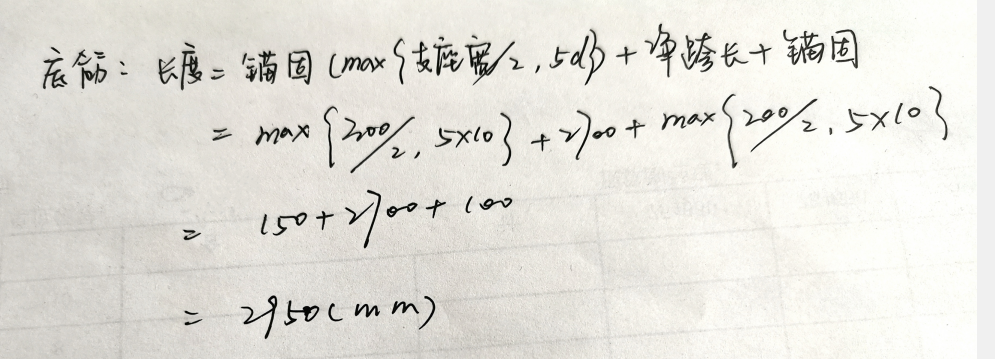 底筋：长度=锚固(max{支座宽/2,5d})+净跨长+锚固
=max{300/2,5×10}+2700+max{200/2,5×10}
=150+2700+100
=2950(mm)